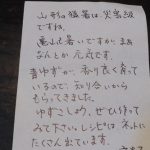 山形の猛暑は災害級
ですね。
亀山も暑いですが、まあ
なんとか元気です。
青ゆずが、香り良く育って
いるので、知り合いから
もらってきました。
ゆずこしょう、ぜひ作って
みて下さい。レシピは ネットに
たくさん出ています。